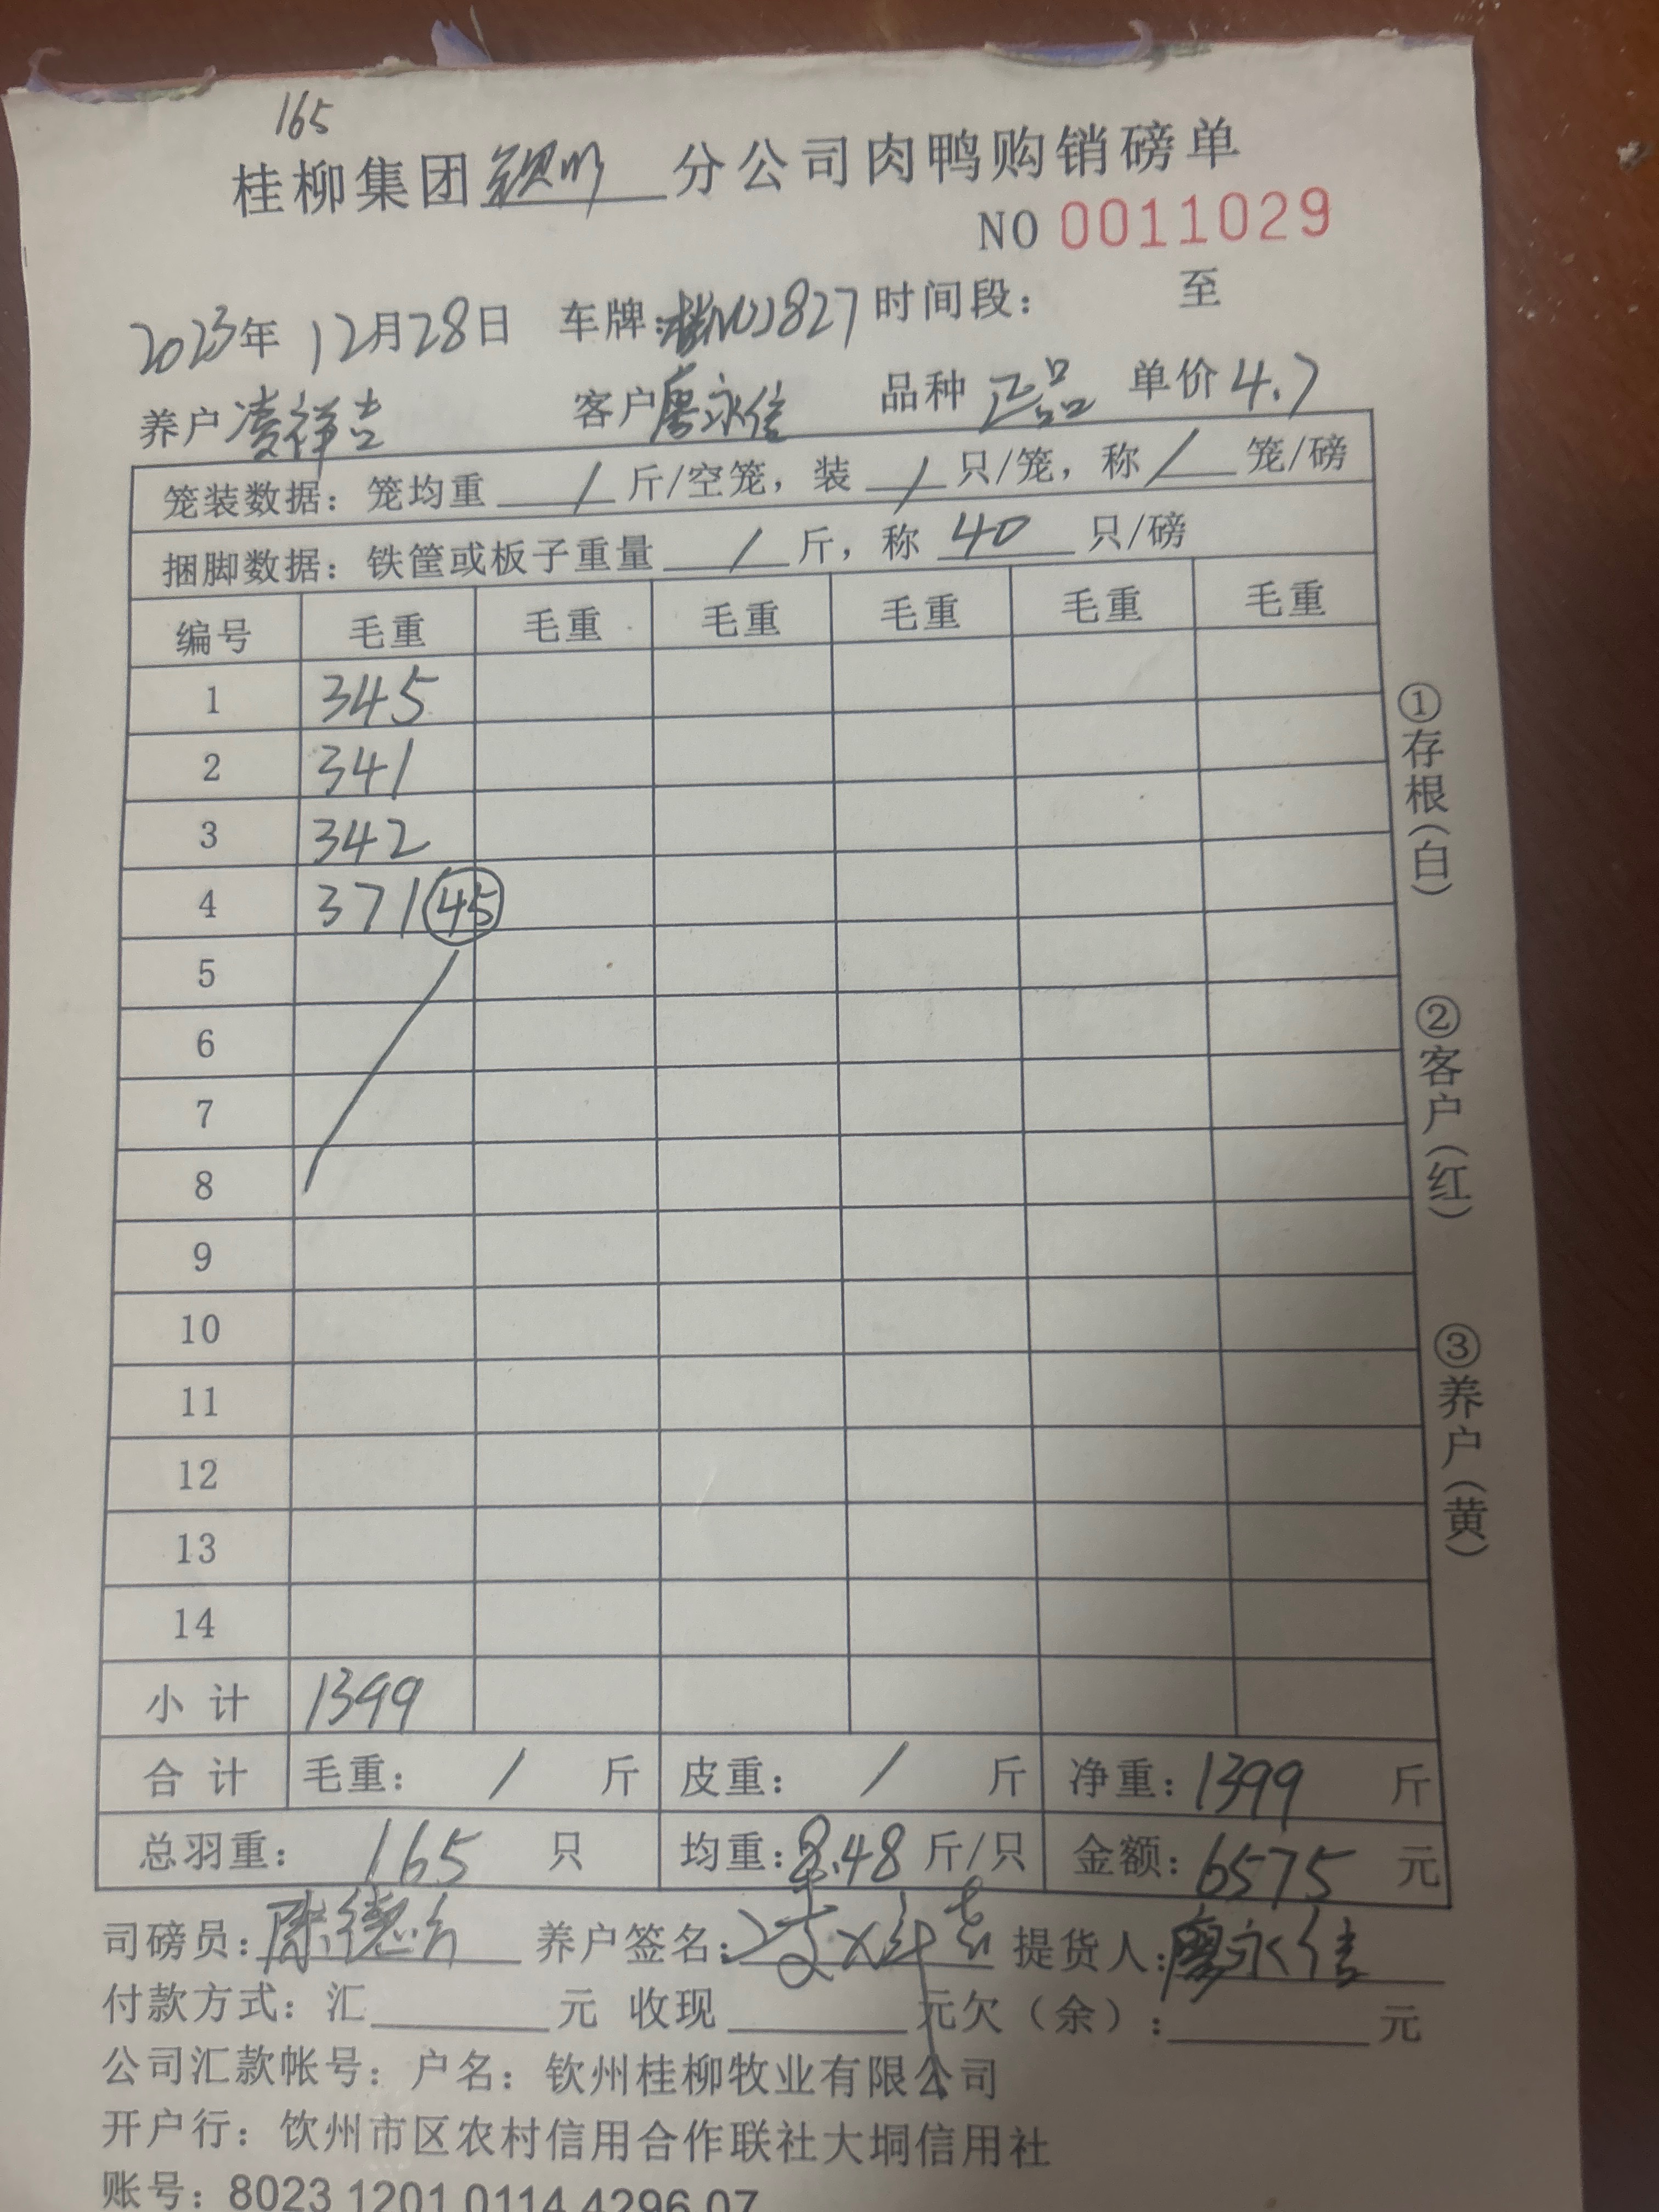 165
桂柳集团钦州分公司肉鸭购销磅单
NO 0011029
2023年 12月28日 车牌: 1827 时间段: 至
养户 凌祥吉 客户 廖永信 品种 正品 单价 4.7
笼装数据: 笼均重 / 斤/空笼, 装 / 只/笼, 称 / 笼/磅
捆脚数据: 铁筐或板子重量 / 斤, 称 40 只/磅
编号 毛重 毛重 毛重 毛重 毛重 毛重
1 345
2 341
3 342
4 371 45
5
6
7
8
9
10
11
12
13
14
小计 1399
合计 毛重: / 斤 皮重: / 斤 净重: 1399 斤
总羽重: 165 只 均重: 8.48 斤/只 金额: 6575 元
司磅员: 陈德 养户签名: 提货人: 廖永信
付款方式: 汇 元 收现 元欠(余): 元
公司汇款帐号: 户名: 钦州桂柳牧业有限公司
开户行: 饮州市区农村信用合作联社大垌信用社
账号: 8023 1201 0114 4296 07
①存根(白) ②客户(红) ③养户(黄)